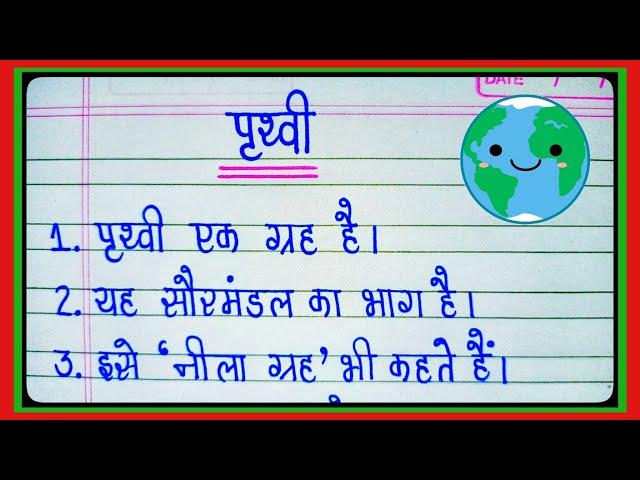 DATE / /
पृथ्वी
1. पृथ्वी एक ग्रह है।
2. यह सौरमंडल का भाग है।
3. इसे 'नीला ग्रह' भी कहते हैं।